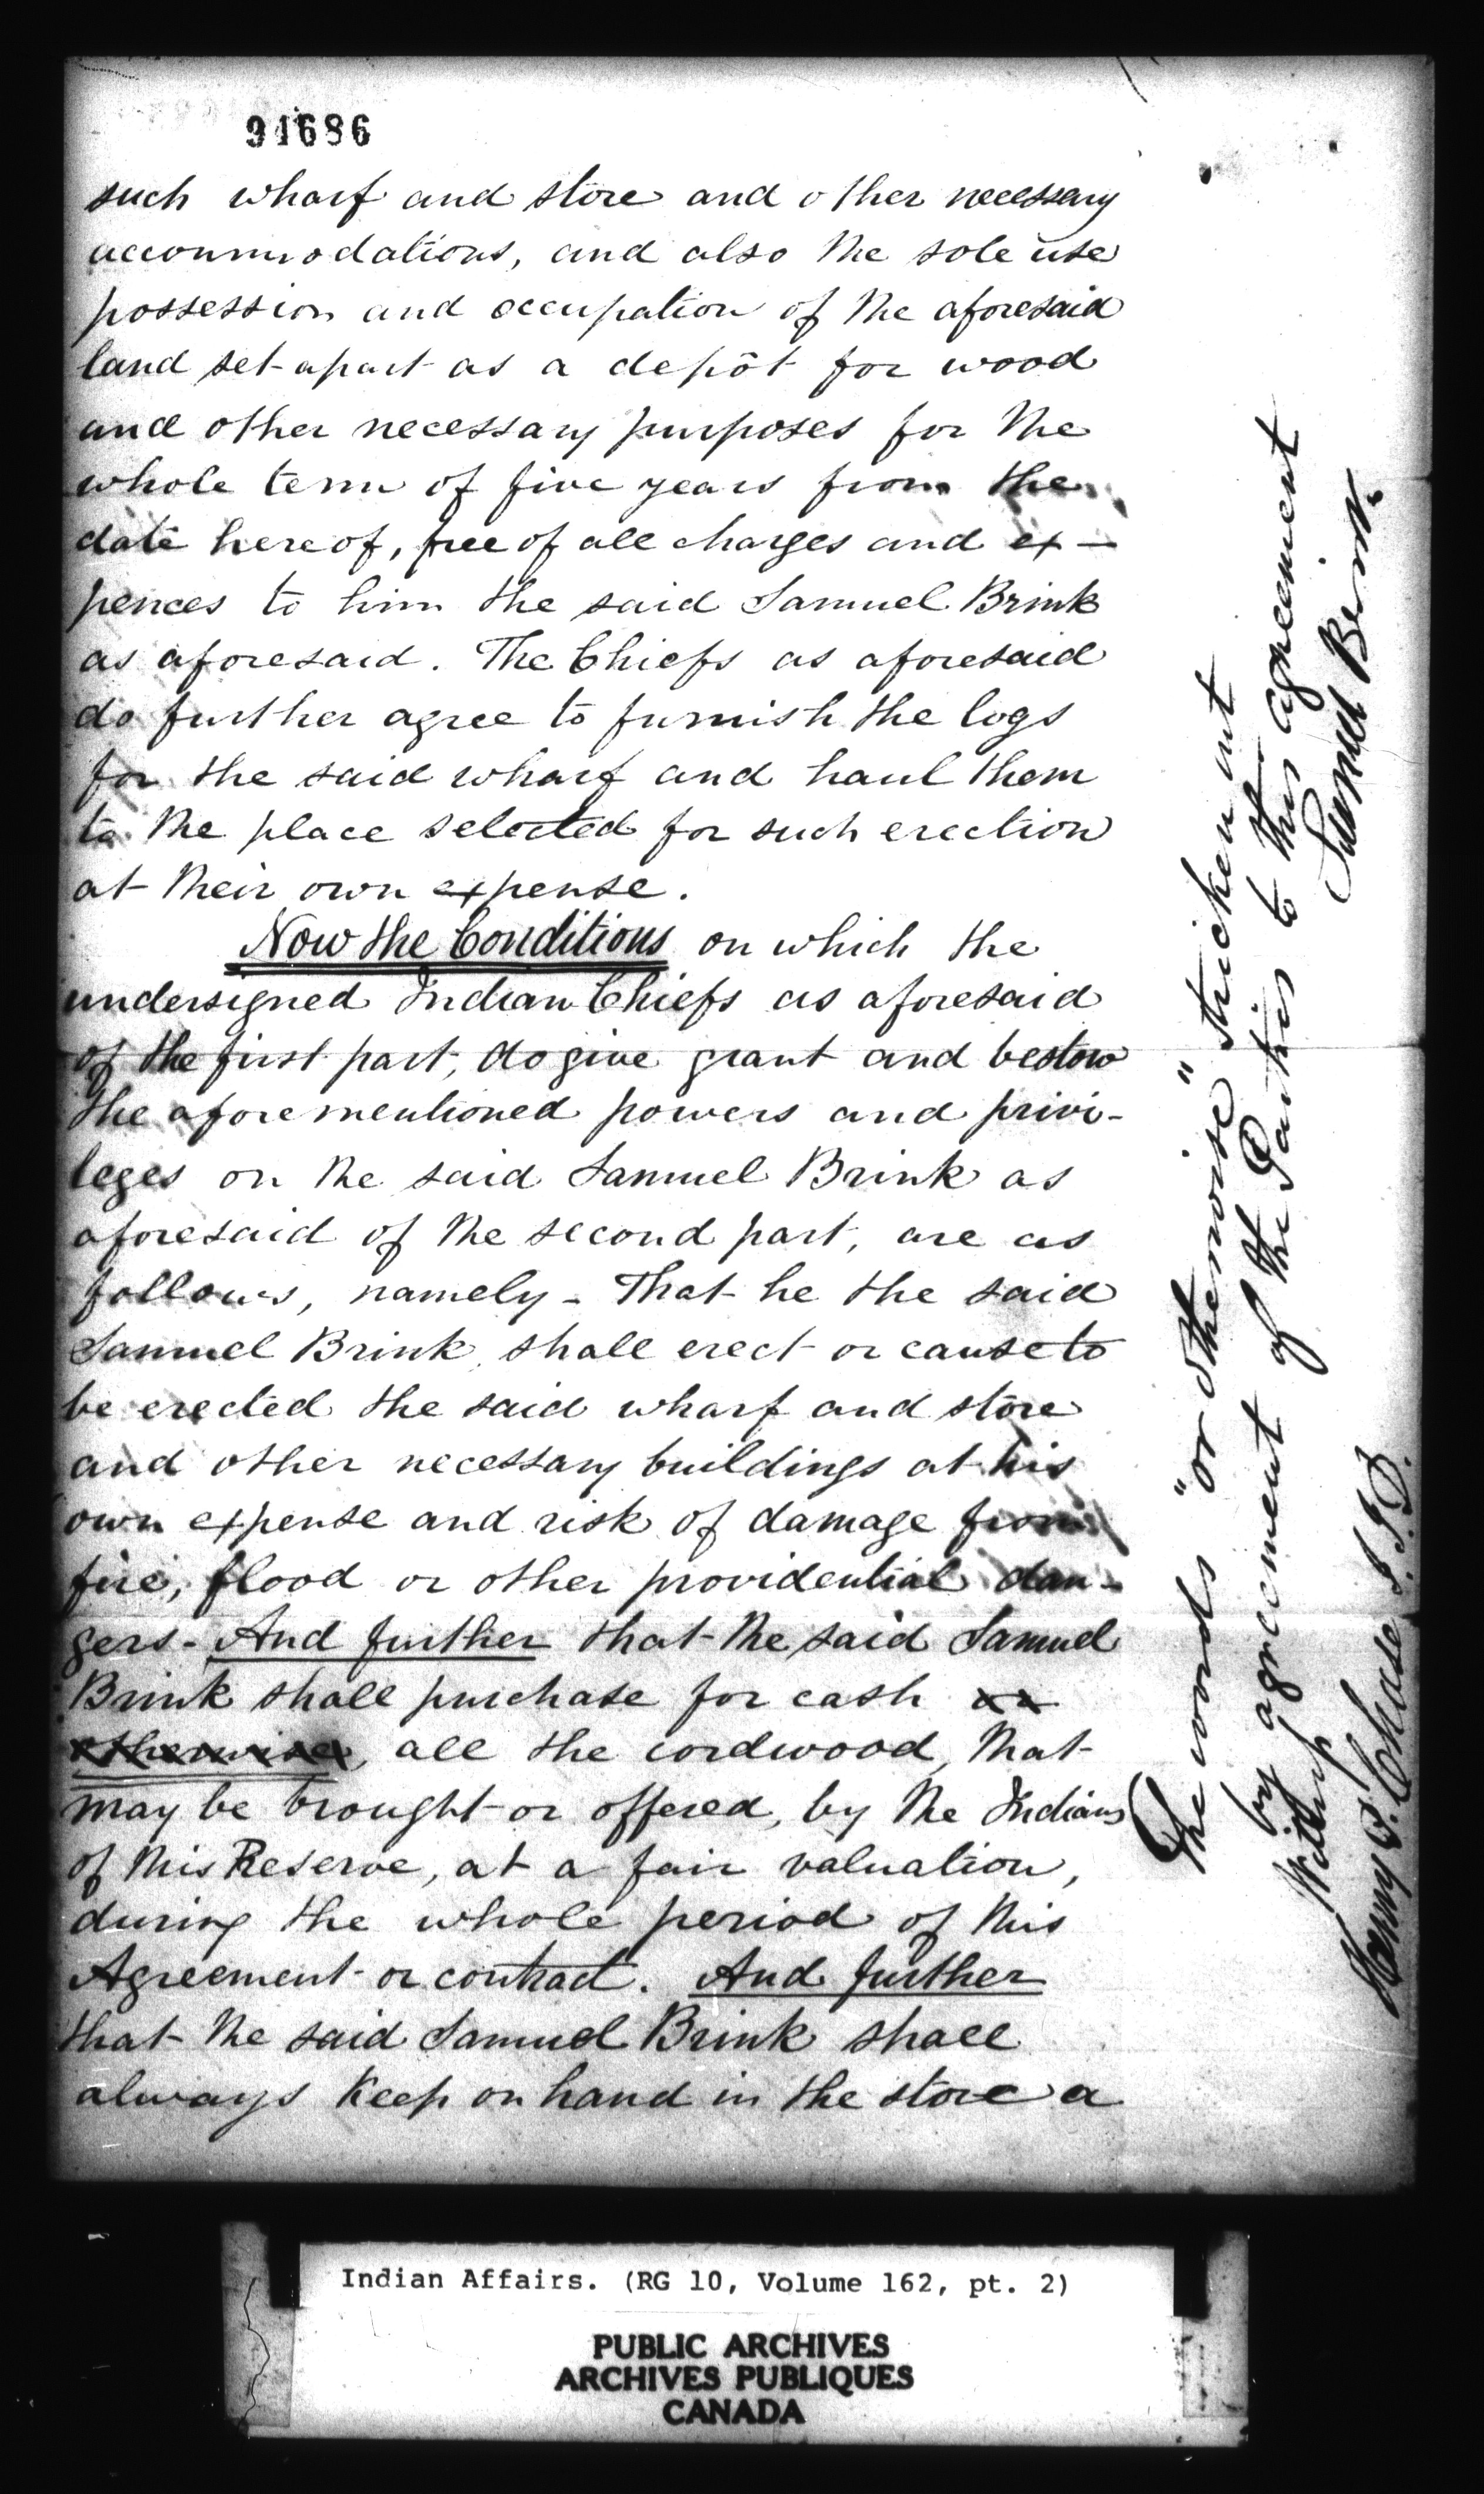 91686
such wharf and store and other necessary
accommodations, and also the sole use
possession and occupation of the aforesaid
land set apart as a depôt for wood
and other necessary purposes for the
whole term of five years from the
date hereof, free of all charges and ex-
pences to him the said Samuel Brink
as aforesaid. The Chiefs as aforesaid
do further agree to furnish the logs
for the said wharf and haul them
to the place selected for such erection
at their own expense.
Now the Conditions on which the
undersigned Indian Chiefs as aforesaid
of the first part, do give grant and bestow
the aforementioned powers and privi-
leges on the said Samuel Brink as
aforesaid of the second part, are as
follows, namely - That he the said
Samuel Brink shall erect or cause to
be erected the said wharf and store
and other necessary buildings at his
own expense and risk of damage from
fire, flood or other providential dan-
gers - And further that the said Samuel
Brink shall purchase for cash or
otherwise, all the cordwood, that
may be brought or offered, by the Indians
of this Reserve, at a fair valuation,
during the whole period of this
Agreement or contract. And further
that the said Samuel Brink shall
always keep on hand in the store a
The words "or otherwise" stricken out
by agreement of the Parties to this agreement
Samuel Brink
Witness
Henry P. Chase I.I.D.
Indian Affairs. (RG 10, Volume 162, pt. 2)
PUBLIC ARCHIVES
ARCHIVES PUBLIQUES
CANADA